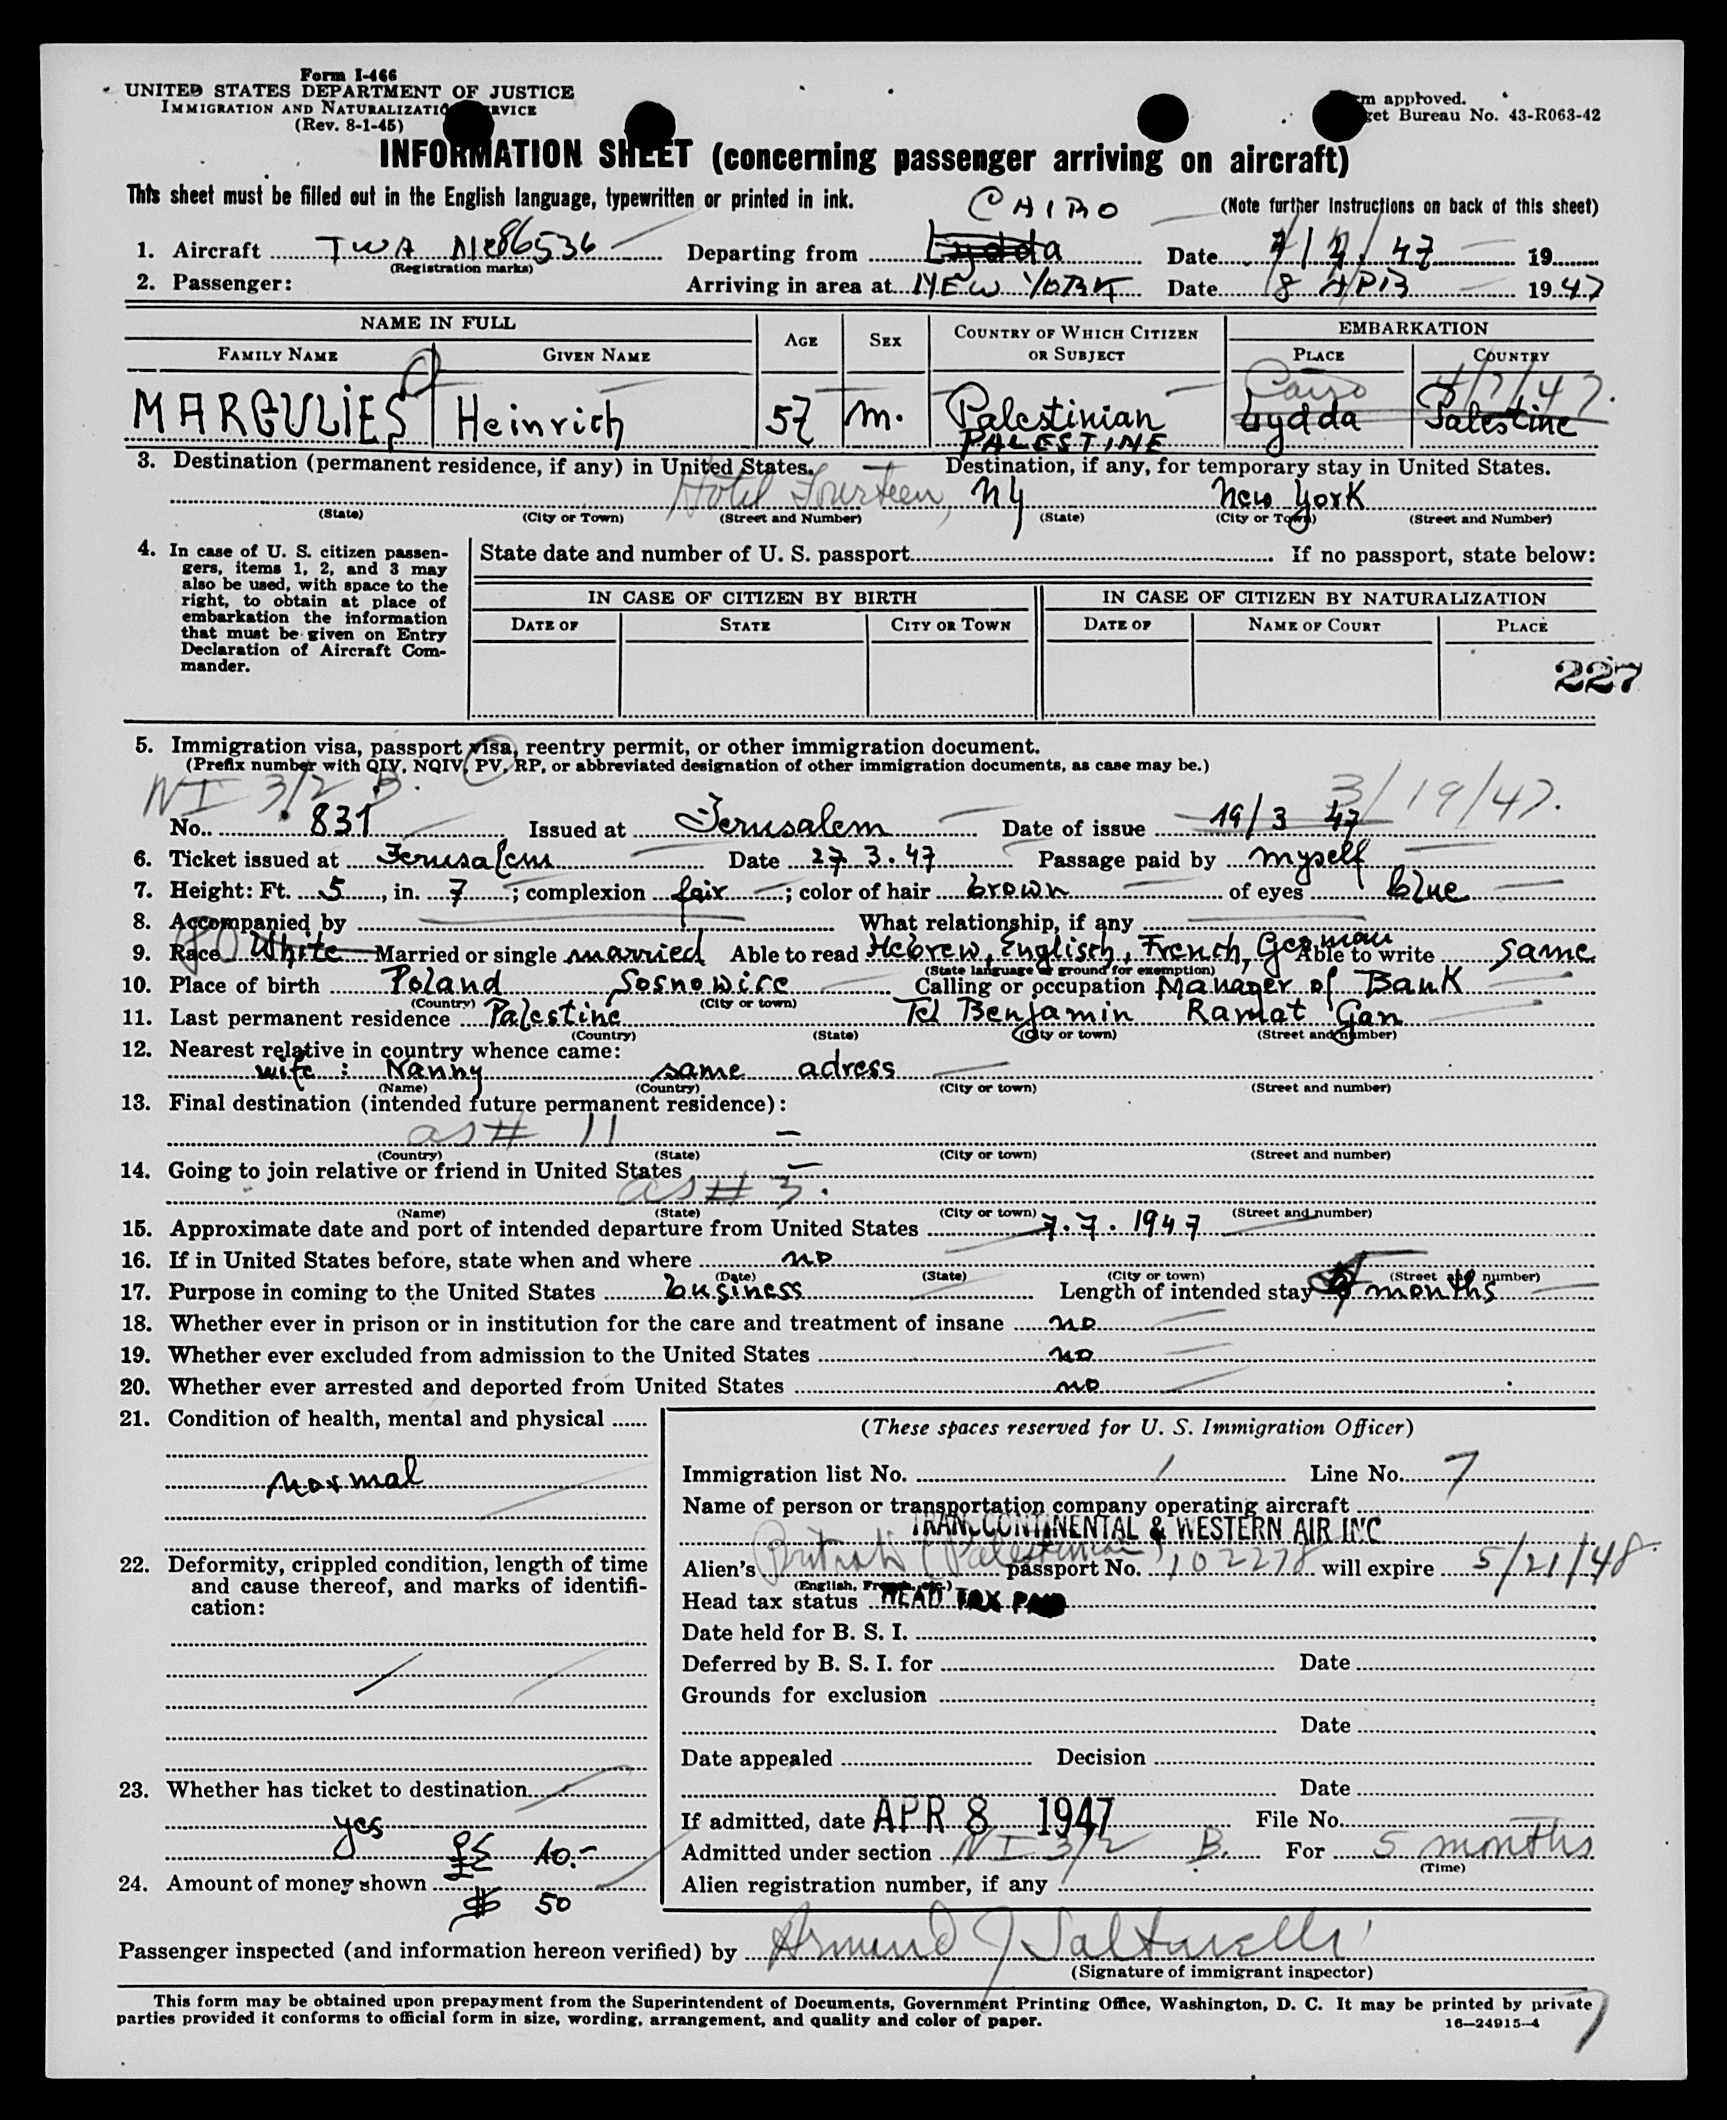 Form I-466
UNITED STATES DEPARTMENT OF JUSTICE
IMMIGRATION AND NATURALIZATION SERVICE
(Rev. 8-1-45)
Form approved.
Budget Bureau No. 43-R063-42
INFORMATION SHEET (concerning passenger arriving on aircraft)
This sheet must be filled out in the English language, typewritten or printed in ink.
CAIRO
(Note further instructions on back of this sheet)
1. Aircraft TWA NC86536 Departing from Lydda Date 7/4. 47 19
(Registration marks)
2. Passenger: Arriving in area at NEW YORK Date 8 APR 1947
NAME IN FULL AGE SEX COUNTRY OF WHICH CITIZEN OR SUBJECT EMBARKATION
FAMILY NAME GIVEN NAME PLACE COUNTRY
Cairo 4/7/47.
MARGULIES Heinrich 57 m. Palestinian Lydda Palestine
PALESTINE
3. Destination (permanent residence, if any) in United States. Destination, if any, for temporary stay in United States.
Hotel Fourteen, NY New York
(State) (City or Town) (Street and Number) (State) (City or Town) (Street and Number)
4. In case of U. S. citizen passengers, items 1, 2, and 3 may also be used, with space to the right, to obtain at place of embarkation the information that must be given on Entry Declaration of Aircraft Commander.
State date and number of U. S. passport If no passport, state below:
IN CASE OF CITIZEN BY BIRTH IN CASE OF CITIZEN BY NATURALIZATION
DATE OF STATE CITY OR TOWN DATE OF NAME OF COURT PLACE
227
5. Immigration visa, passport visa, reentry permit, or other immigration document.
(Prefix number with QIV, NQIV, PV, RP, or abbreviated designation of other immigration documents, as case may be.)
NI 3/2 B. 3/19/47.
No. 831 Issued at Jerusalem Date of issue 19/3 47
6. Ticket issued at Jerusalem Date 27.3.47 Passage paid by myself
7. Height: Ft. 5, in. 7; complexion fair; color of hair brown of eyes blue
8. Accompanied by What relationship, if any
9. Race White Married or single married Able to read Hebrew, Englisch, French, German Able to write same
(State language or ground for exemption)
10. Place of birth Poland Sosnowice Calling or occupation Manager of Bank
(Country) (City or town)
11. Last permanent residence Palestine Tel Benjamin Ramat Gan
(Country) (State) (City or town) (Street and number)
12. Nearest relative in country whence came:
wife: Nanny same adress
(Name) (Country) (City or town) (Street and number)
13. Final destination (intended future permanent residence):
as # 11 —
(Country) (State) (City or town) (Street and number)
14. Going to join relative or friend in United States —
as # 3.
(Name) (State) (City or town) (Street and number)
15. Approximate date and port of intended departure from United States 7.7.1947
16. If in United States before, state when and where no
(Date) (State) (City or town) (Street and number)
17. Purpose in coming to the United States business Length of intended stay months
18. Whether ever in prison or in institution for the care and treatment of insane no
19. Whether ever excluded from admission to the United States no
20. Whether ever arrested and deported from United States no
21. Condition of health, mental and physical
normal
22. Deformity, crippled condition, length of time and cause thereof, and marks of identification:
23. Whether has ticket to destination
yes
£ 10.-
24. Amount of money shown
$ 50
(These spaces reserved for U. S. Immigration Officer)
Immigration list No. 1 Line No. 7
Name of person or transportation company operating aircraft
TRANSCONTINENTAL & WESTERN AIR INC
Alien's British (Palestinian) passport No. 102278 will expire 5/21/48.
(English, French, etc.)
Head tax status HEAD TAX PAID
Date held for B. S. I.
Deferred by B. S. I. for Date
Grounds for exclusion
Date
Date appealed Decision
Date
If admitted, date APR 8 1947 File No.
Admitted under section NI 3/2 B. For 5 months
(Time)
Alien registration number, if any
Passenger inspected (and information hereon verified) by Armand J Saltarelli
(Signature of immigrant inspector)
This form may be obtained upon prepayment from the Superintendent of Documents, Government Printing Office, Washington, D. C. It may be printed by private
parties provided it conforms to official form in size, wording, arrangement, and quality and color of paper.
16—24915-4
7